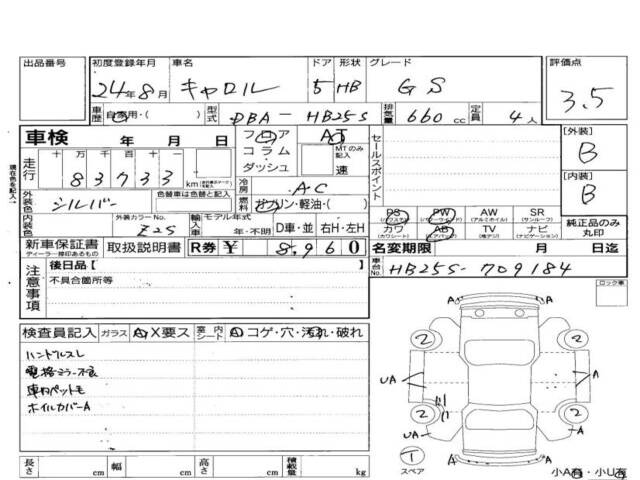 出品番号
初度登録年月 車名 ドア 形状 グレード 評価点
24年8月 キャロル 5 HB GS 3.5
車歴 自家用・( ) 型式 DBA-HB25S 排気量 660cc 定員 4人
車検 年 月 日 フロア AT セールスポイント [外装]
コラム MTのみ記入 B
ダッシュ 速
現在色を記入
走行 十万千百十一
83733 km
冷房 AC [内装]
B
外装色 シルバー 色替車は色替と記入 燃料 ガソリン・軽油・( )
PS PW AW SR
(パワステ) (パワーウインド) (アルミホイル) (サンルーフ)
内装色 外装カラーNo. Z2S 輸入車 モデル年式 年・不明 D車・並 右H・左H
カワ AB TV ナビ
(カワシート) (エアバック) (地デジ) (ナビゲーション)
純正品のみ丸印
新車保証書 取扱説明書 R券 ¥ 8960 名変期限 月 日迄
ディーラー捺印あるもの
注意事項 後日品【 】 車台No. HB25S-709184
不具合箇所等
ロック車
検査員記入 ガラス A・X要ス 室内シート A・コゲ・穴・汚れ・破れ
ハンドルスレ
電格ミラー不良
車内ペット毛
ホイルカバーA
A A
2 2
UA A
2 2
UA A
T
スペア
A A
小A有・小U有
長さ cm 幅 cm 高さ cm 積載量 kg